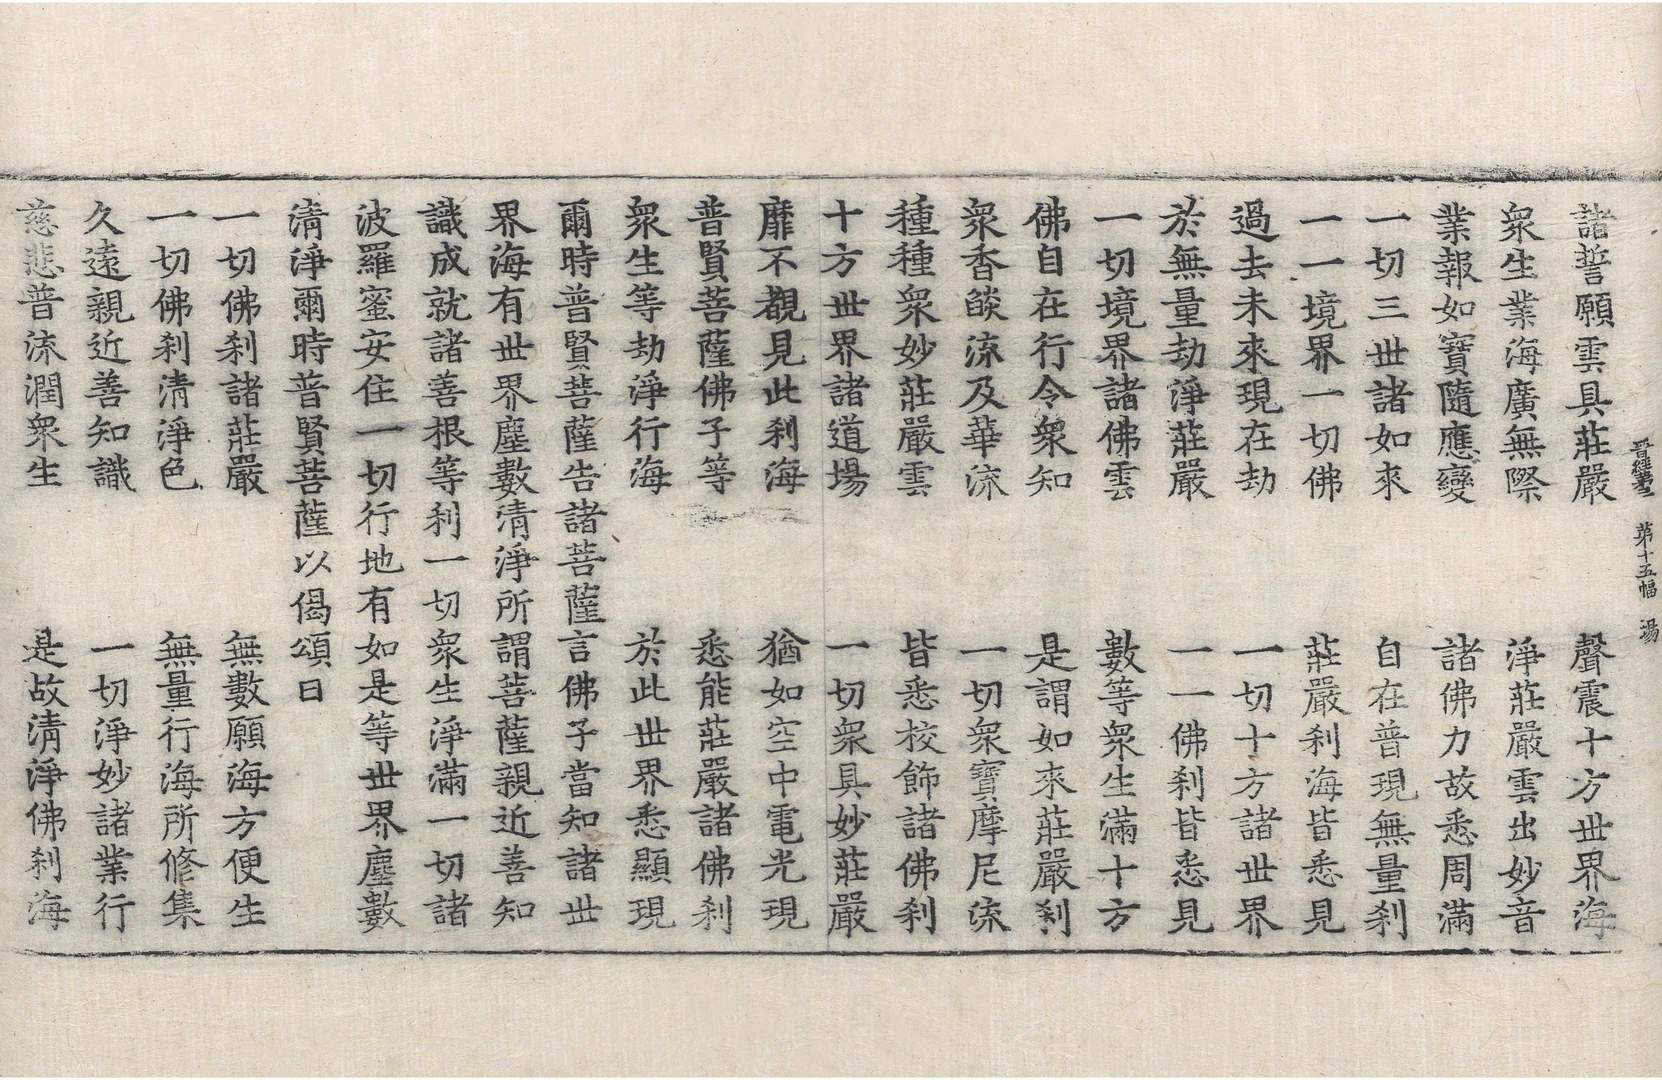 諸誓願雲具莊嚴　聲震十方世界海
眾生業海廣無際　淨莊嚴雲出妙音
業報如寶隨應變　諸佛力故悉周滿
一切三世諸如來　自在普現無量刹
一一境界一切佛　莊嚴刹海皆悉見
過去未來現在劫　一切十方諸世界
於無量劫淨莊嚴　一一佛刹皆悉見
一切境界諸佛雲　數等眾生滿十方
佛自在行令眾知　是謂如來莊嚴刹
眾香燄流及華流　一切眾寶摩尼流
種種眾妙莊嚴雲　皆悉校飾諸佛刹
十方世界諸道場　一切眾具妙莊嚴
靡不覩見此刹海　猶如空中電光現
普賢菩薩佛子等　悉能莊嚴諸佛刹
眾生等劫淨行海　於此世界悉顯現
爾時普賢菩薩告諸菩薩言佛子當知諸世
界海有世界塵數清淨所謂菩薩親近善知
識成就諸善根等利一切眾生淨滿一切諸
波羅蜜安住一切行地有如是等世界塵數
清淨爾時普賢菩薩以偈頌曰
一切佛刹諸莊嚴　無數願海方便生
一切佛刹清淨色　無量行海所修集
久遠親近善知識　一切淨妙諸業行
慈悲普流潤眾生　是故清淨佛刹海
第十五幅　湯